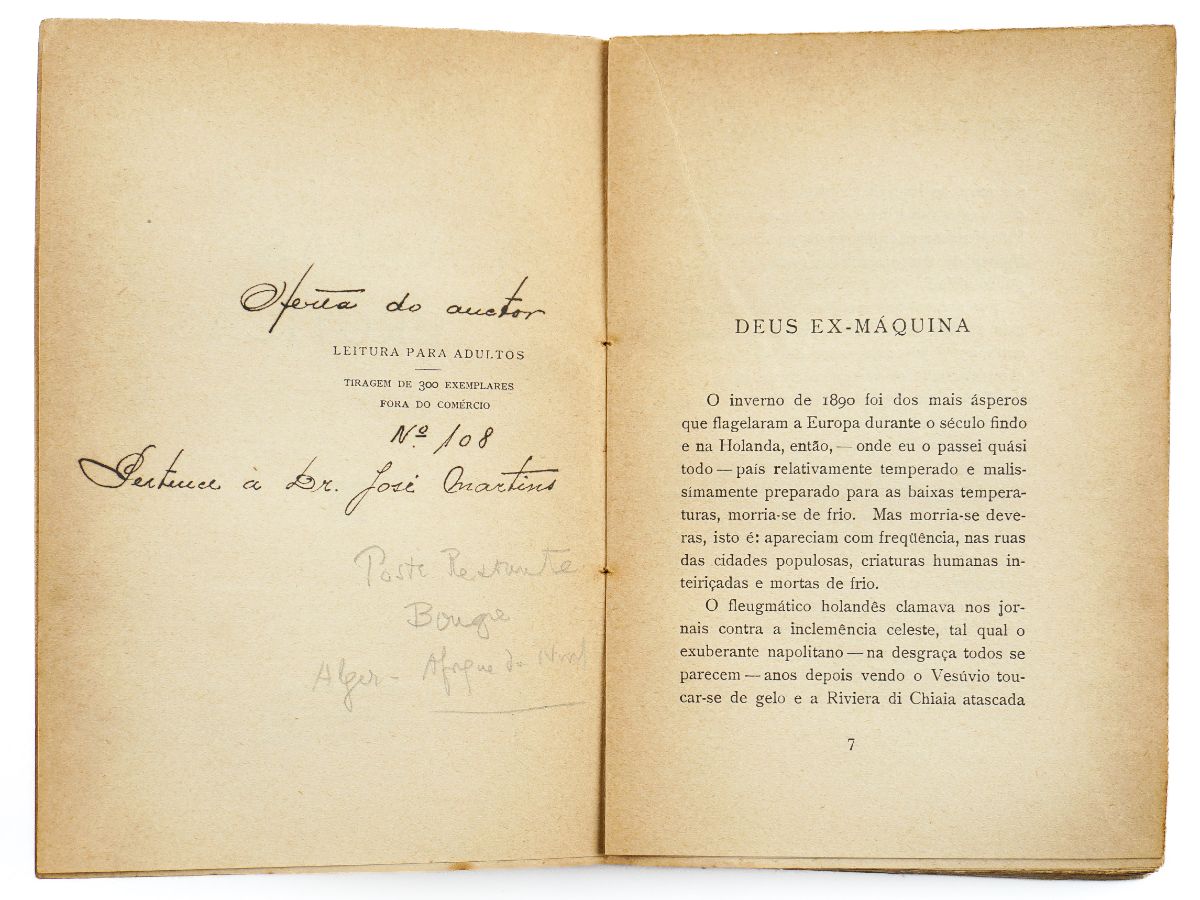 Oferta do auctor
LEITURA PARA ADULTOS
TIRAGEM DE 300 EXEMPLARES
FORA DO COMÉRCIO
Nº 108
Pertence à Dr. José Martins
Poste Restante
Bougie
Alger - Afrique du Nord
DEUS EX-MÁQUINA
O inverno de 1890 foi dos mais ásperos
que flagelaram a Europa durante o século findo
e na Holanda, então, — onde eu o passei quási
todo — país relativamente temperado e malis-
símamente preparado para as baixas tempera-
turas, morria-se de frio. Mas morria-se deve-
ras, isto é: apareciam com freqüência, nas ruas
das cidades populosas, criaturas humanas in-
teiriçadas e mortas de frio.
O fleugmático holandês clamava nos jor-
nais contra a inclemência celeste, tal qual o
exuberante napolitano — na desgraça todos se
parecem — anos depois vendo o Vesúvio tou-
car-se de gelo e a Riviera di Chiaia atascada
7